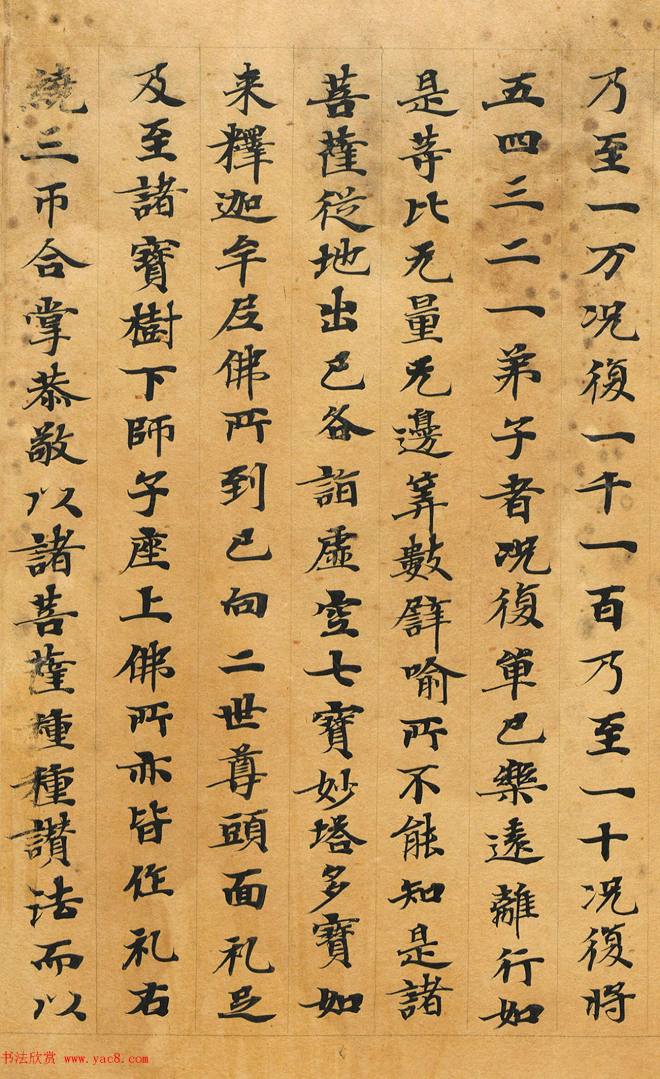 乃至一万况復一千一百乃至一十况復將
五四三二一弟子者况復単已樂遠離行如
是等比无量无邊筭數譬喻所不能知是諸
菩薩從地出已各詣虛空七寶妙塔多寶如
来釋迦牟尼佛所到已向二世尊頭面礼足
及至諸寶樹下師子座上佛所亦皆作礼右
繞三帀合掌恭敬以諸菩薩種種讃法而以
书法欣赏 www.yac8.com